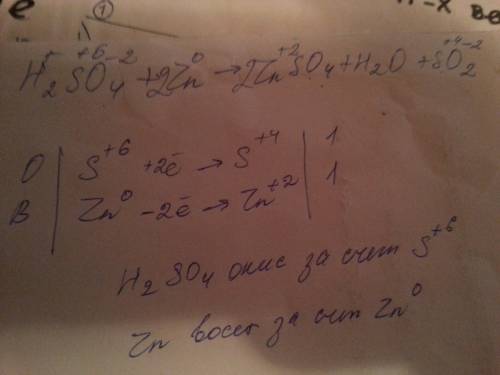 ①
H₂⁺S⁺⁶O₄⁻² + 2Zn⁰ → 2Zn⁺²SO₄ + H₂O + S⁺⁴O₂⁻²
О | S⁺⁶ +2ē → S⁺⁴ | 1
В | Zn⁰ -2ē → Zn⁺² | 1
H₂SO₄ окис за счет S⁺⁶
Zn восст за счет Zn⁰